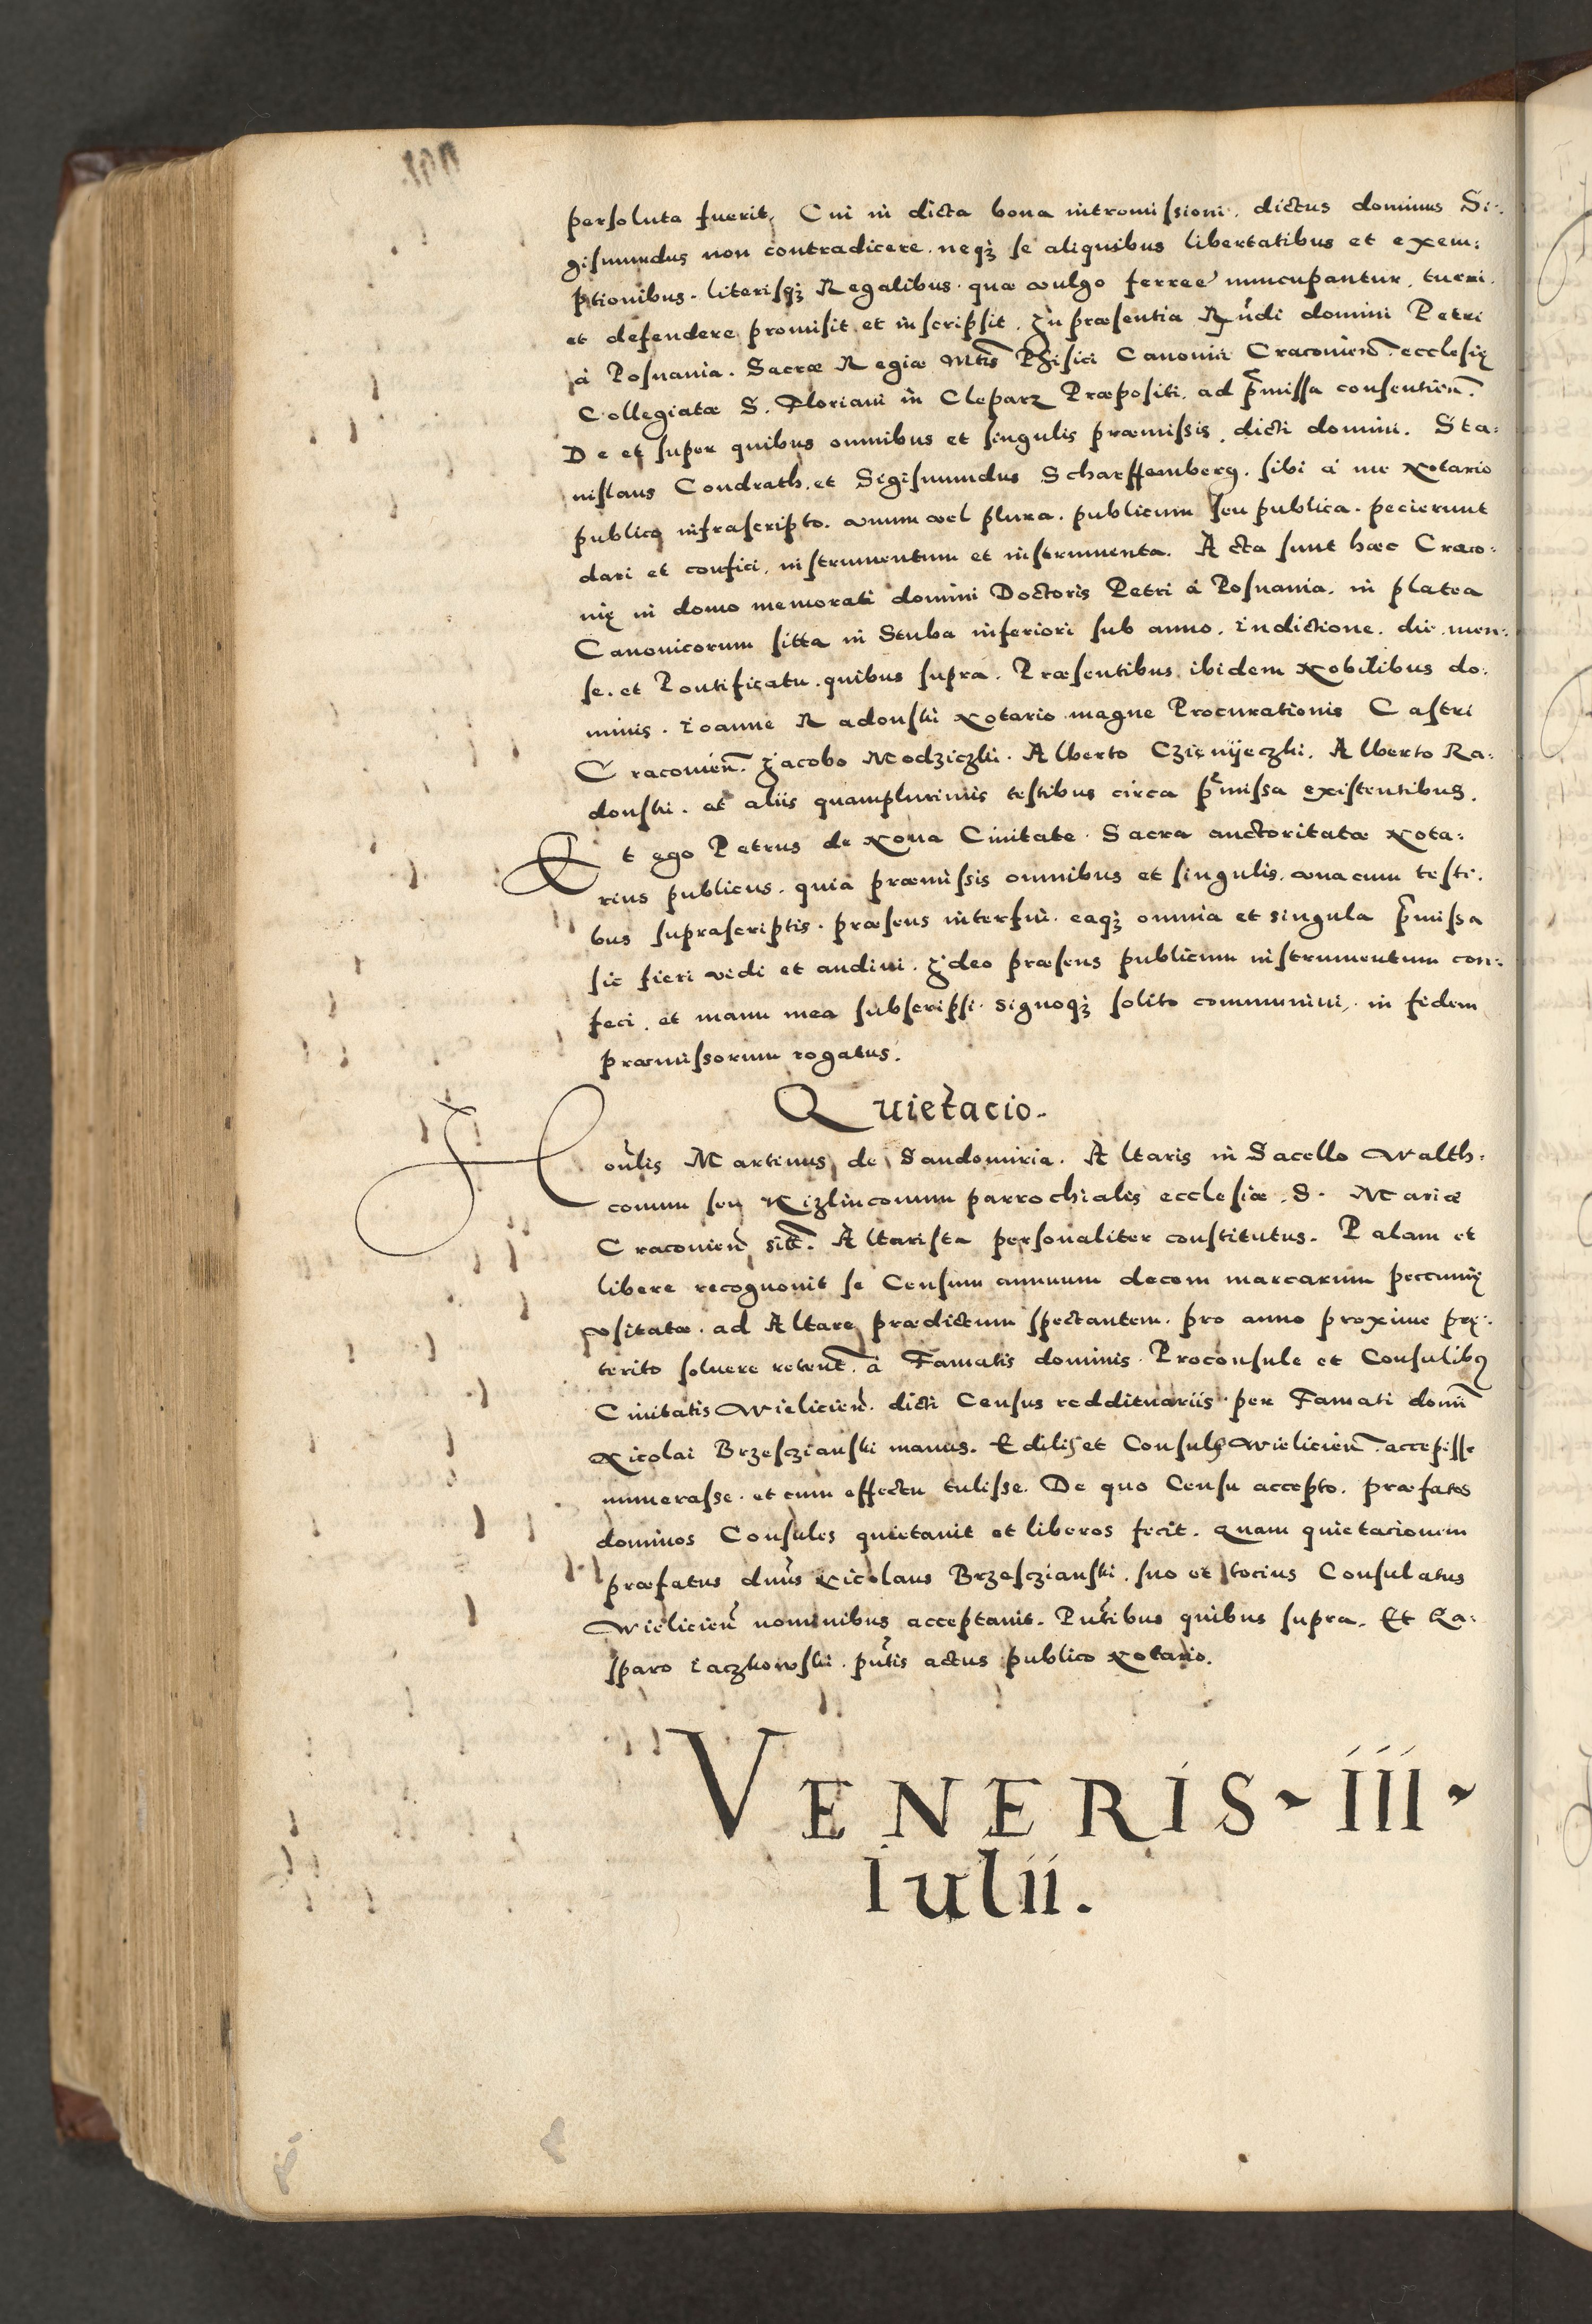 persoluta fuerit, Cui in dicta bona intromissioni. dictus dominus Si-
gismundus non contradicere. neq̄ se aliquibus libertatibus et exem-
ptionibus. literisq̄ Regalibus. quæ vulgo ferreę nuncupantur. tueri.
et defendere promisit et inscripsit. In præsentia Rndi domini Petri
à Posnania. Sacræ Regiæ Mtis Phisici Canonici Cracovien. ecclesię
Collegiatæ S. Floriani in Cleparz Præpositi. ad pmissa consentien.
De et super quibus omnibus et singulis præmissis. dicti domini. Sta-
nislaus Condrath. et Sigismundus Scharffemberg. sibi à me Notario
publico infrascripto. vnum vel plura. publicum seu publica. pecierunt
dari et confici. instrumentum et instrumenta. Acta sunt hæc Craco-
vię in domo memorati domini Doctoris Petri à Posnania. in platea
Canonicorum sitta in Stuba inferiori sub anno. indictione. die. men-
se. et Pontificatu. quibus supra. Præsentibus ibidem Nobilibus do-
minis. Ioanne Radonski Notario magne Procurationis Castri
Cracovien. Jacobo Modziczki. Alberto Czienijeczki. Alberto Ra-
donski. et aliis quamplurimis testibus circa pmissa existentibus.
Et ego Petrus de Nova Civitate. Sacra auctoritatæ Nota-
rius publicus. quia præmissis omnibus et singulis. vna cum testi-
bus suprascriptis. præsens interfui. eaq̄ omnia et singula pmissa
sic fieri vidi et audivi. Ideo præsens publicum instrumentum con-
feci. et manu mea subscripsi. signoq̄ solito communivi. in fidem
præmissorum rogatus.
Quietacio.
Honlis Martinus de Sandomiria. Altaris in Sacello Walth-
comum seu Kizlincomum parrochialis ecclesiæ. S. Mariæ
Cracovien sitt. Altarista personaliter constitutus. Palam et
libere recognovit se Censum annuum decem marcarum peccunię
vsitatæ. ad Altare prædictum spectantem. pro anno proxime prę-
terito solvere retent. à Famatis dominis. Proconsule et Consulibus
Civitatis Wielicien. dicti Census reddituariis. per Famati domi
Nicolai Brzesczianski manus. Edilis et Consulis Wielicien. accepisse
numerasse. et cum effectu tulisse. De quo Censu accepto. præfatos
dominos Consules quietavit et liberos fecit. Quam quietacionem
præfatus dnus Nicolaus Brzesczianski. suo et tocius Consulatus
Wielicien nominibus acceptavit. Pntibus quibus supra. Et Ga-
sparo Iaczkowski. pntis actus publico Notario.
VENERIS ~ III ~
Iulii.